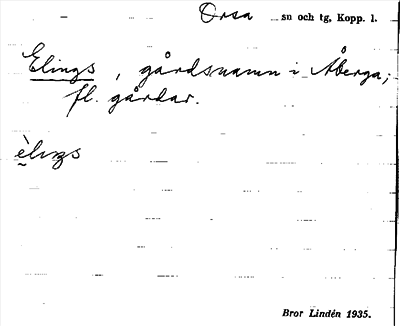 Orsa sn och tg, Kopp. l.
Elings, gårdsnamn i Åberga;
fl. gårdar.
è̬lıŋs
Bror Lindén 1935.